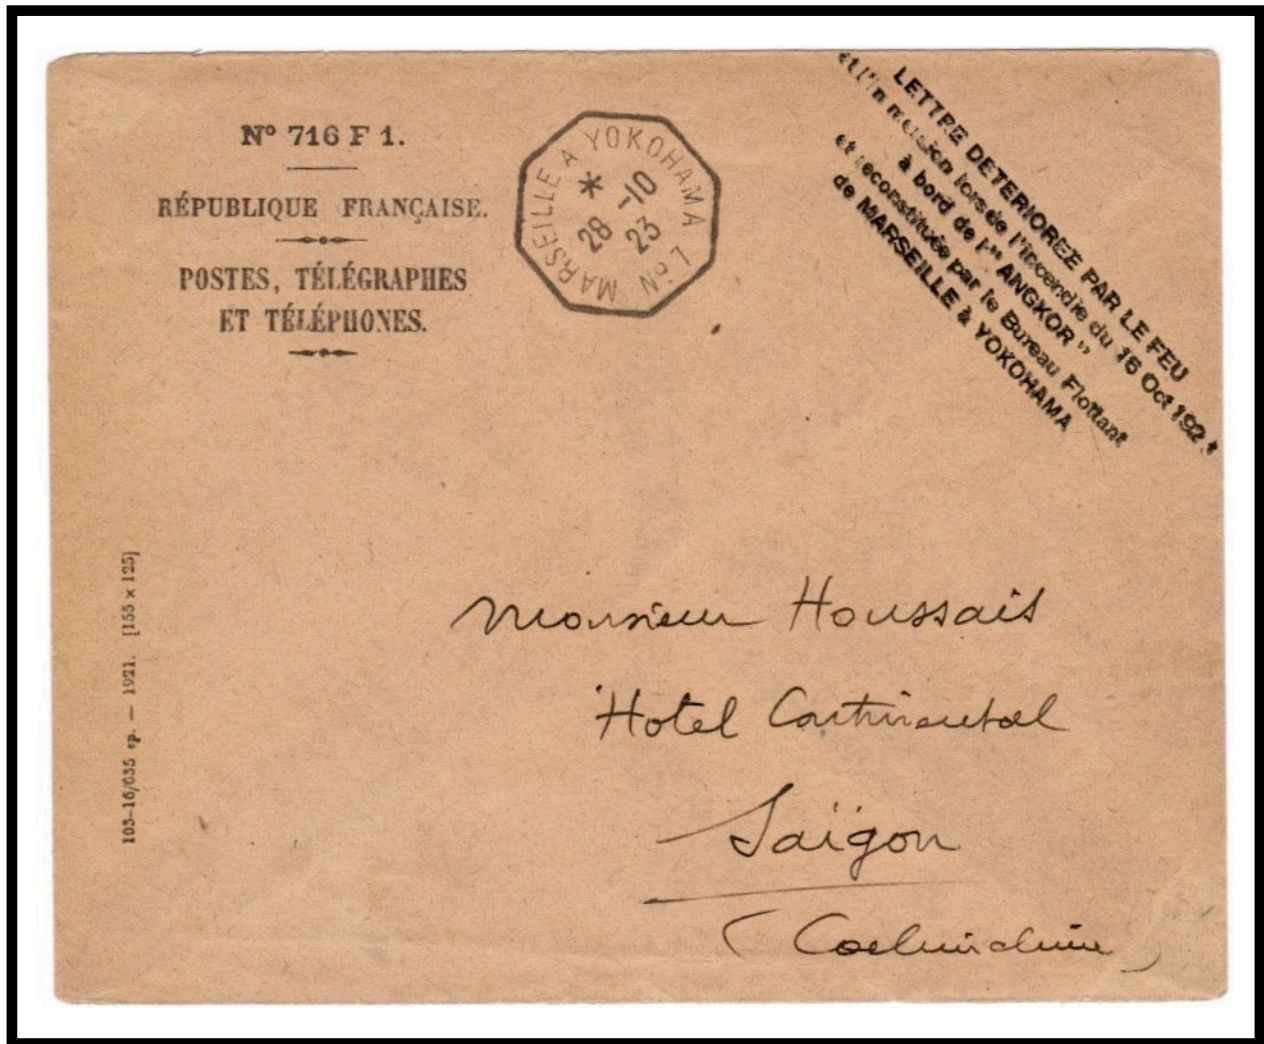 Nº 716 F 1.
RÉPUBLIQUE FRANÇAISE.
POSTES, TÉLÉGRAPHES
ET TÉLÉPHONES.
MARSEILLE A YOKOHAMA Nº 7
* -10
28 23
LETTRE DETERIOREE PAR LE FEU
et l'immersion lors de l'incendie du 16 Oct 192
à bord de l'"ANGKOR"
et reconstituée par le Bureau Flottant
de MARSEILLE à YOKOHAMA
103-16/635 ep. — 1921. [155 x 125]
Monsieur Houssais
Hotel Continental
Saïgon
(Cochinchine)